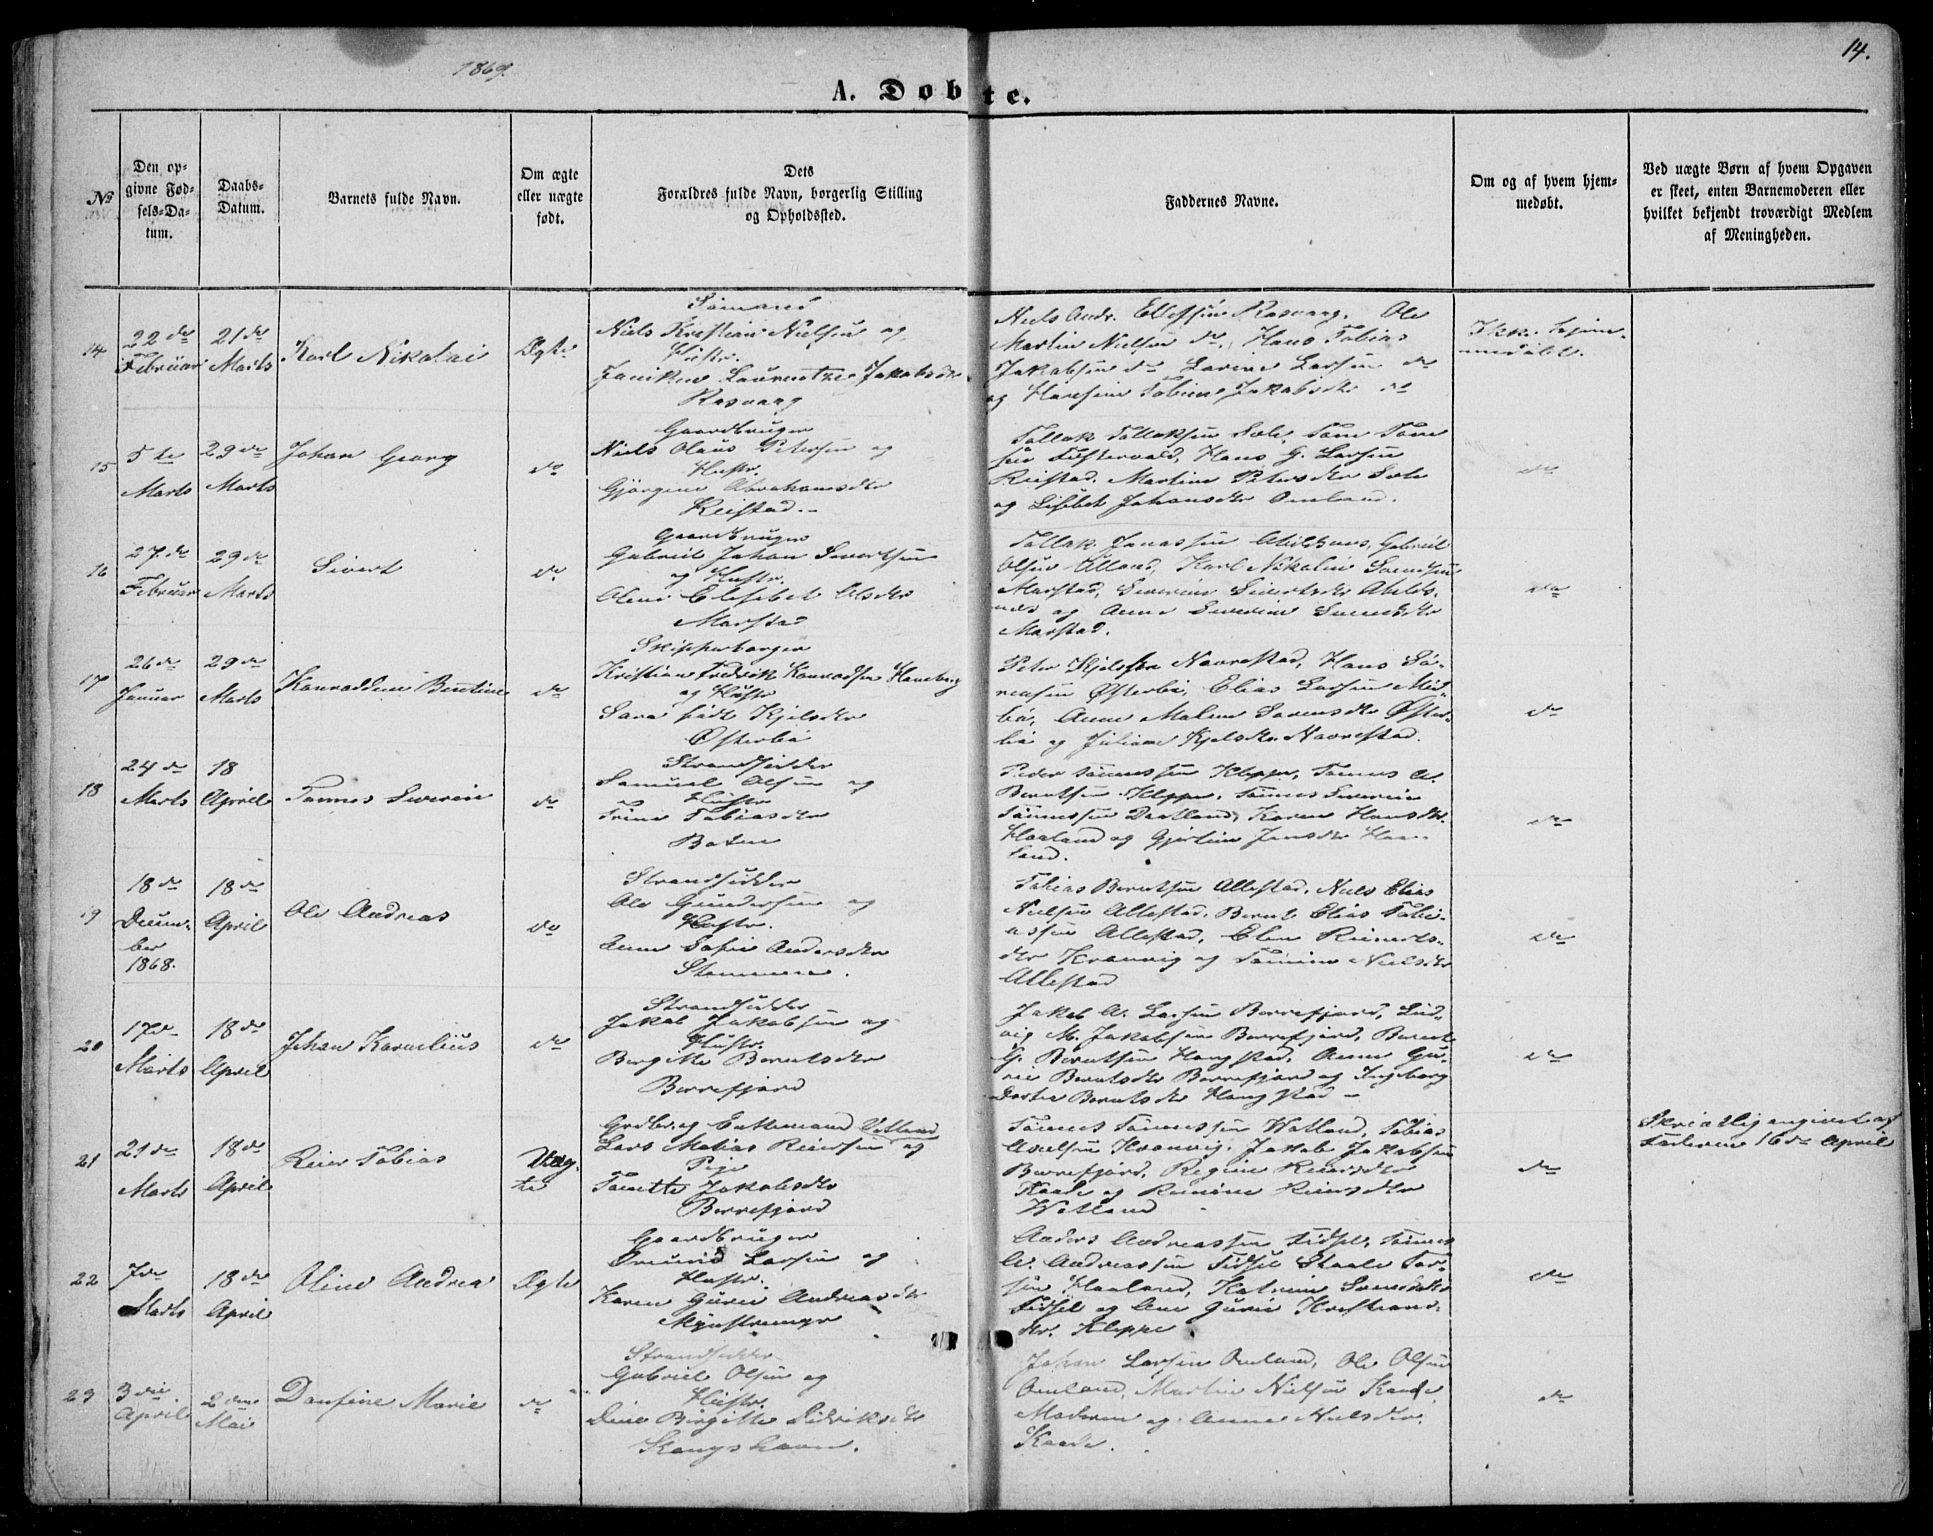 1869.
14.
A. Døbte.
№
Den opgivne Fødsels-Datum.
Daabs-Datum.
Barnets fulde Navn.
Om ægte eller uægte født.
Dets Forældres fulde Navn, borgerlig Stilling og Opholdssted.
Faddernes Navne.
Om og af hvem hjemmedøbt.
Ved uægte Børn af hvem Opgaven er skeet, enten Barnemoderen eller hvilket bekjendt troværdigt Medlem af Meningheden.
14
22de Februar
21de Marts
Karl Nikolai
Ægte
Sömand
Niels Kristian Nielsen og
Hustr.
Laurentze Jakobsdtr
Rasvaag
Niels Andr. Rasvaag, Ole
Martin Nielsen do, Hans Tobias
Jakobsen do Larsen do
og Tobine Jakobsdtr do
Ikke hjemmedöbt.
15
5te Marts
29de Marts
Johan Georg
do
Gaardbruger
Niels Olaus Petersen og
Hustr.
Gjörgine Abrahamsdtr
Reistad.
Tollak Tollaksen
Hans G. Larsen
Reistad. Martine Petersdtr
og Lisebet Johansdtr Omland.
do
16
27de Februar
29de Marts
Sivert
do
Gaardbruger
Gabriel Johan Sivertsen
og Hustr.
Olene Elisebet Olsdtr
Marstad
Tollak Jonassen Gabriel
Olsen Karl Nikolai Svendsen
Marstad, Severine Sivertsdtr
og Anne Severine
Marstad.
do
17
26de Januar
29de Marts
Konraddine Bentine
do
Skipperborger
Kristian Fredrik Konradsen
og Hustr
Sara födt Kjelsdtr
Østerbö
Peter Kjelsen Navrestad, Hans Sörensen Østerbö, Elias Larsen
Anne Malene Sörensdtr Østerbö og Juliane Kjelsdtr Navrestad.
do
18
24de Marts
18 April
Tönnes Severin
do
Strandsidder
Samuel Olsen og
Hustr
Trine Tobiasdtr
Peder Tönnessen Kleppe, Tönnes A.
Berntsen Kleppe, Tönnes Severin
Tönnessen Karen Hansdtr
Haaland og Jensdtr Haaland.
do
19
18de December 1868.
18de April
Ole Andreas
do
Strandsidder
Ole Gundersen og
Hustr.
Anne Sofie Andersdtr
Stommen.
Tobias Berntsen Allestad, Niels Elias
Nielsen Allestad, Bernt Elias Tobiassen Allestad, Elen Reinertsdtr og Nielsdtr
Allestad
do
20
17de Marts
18de April
Johan Kornelius
do
Strandsidder
Jakob Jakobsen og
Hustr.
Bergitte Berntsdtr
Borrefjord
Jakob A. Larsen Borrefjord, Ludvig M. Jakobsen Borrefjord, Bernt
G. Berntsen Haugstad, Anne Gurie Berntsdtr Borrefjord og Ingeborg
Dortea Berntsdtr Haugstad
do
21
21de Marts
18de April
Reier Tobias
Uægte
Grdbr. og Enkemand
Lars Matias Reiersen og
Pige
Tonette Jakobsdtr
Borrefjord
Tönnes Tönnessen Watland, Tobias
Axelsen Jakob Jakobsen
Borrefjord, Regine Reiersdtr
og Reiersdtr
Watland
do
Skriftlig angivet af
Faderen 16de April
22
7de Marts
18de April
Oline Andrea
Ægte
Gaardbruger
Larsen og
Hustr.
Karen Gurie Andreasdtr
Anders Andreassen Fidsel, Tönnes
A. Andreassen Fidsel Staale
Haaland, Katrine Svendsdtr
Fidsel og Ane Gurie Kristiansdtr. Kleppe
do
23
3die April
2den Mai
Danfine Marie
do
Strandsidder
Gabriel Olsen og
Hustr.
Birgitte Didriksdtr
Johan Larsen Omland, Ole Olsen
Omland, Martin Nielsen Kaade,
Moderen og Anne Nielsdtr.
Kaade.
do